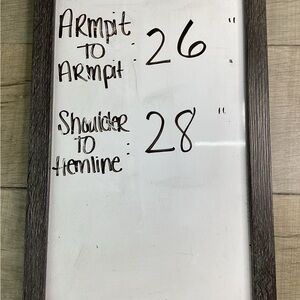 Armpit
TO
Armpit : 26 "
Shoulder
TO
Hemline : 28 "